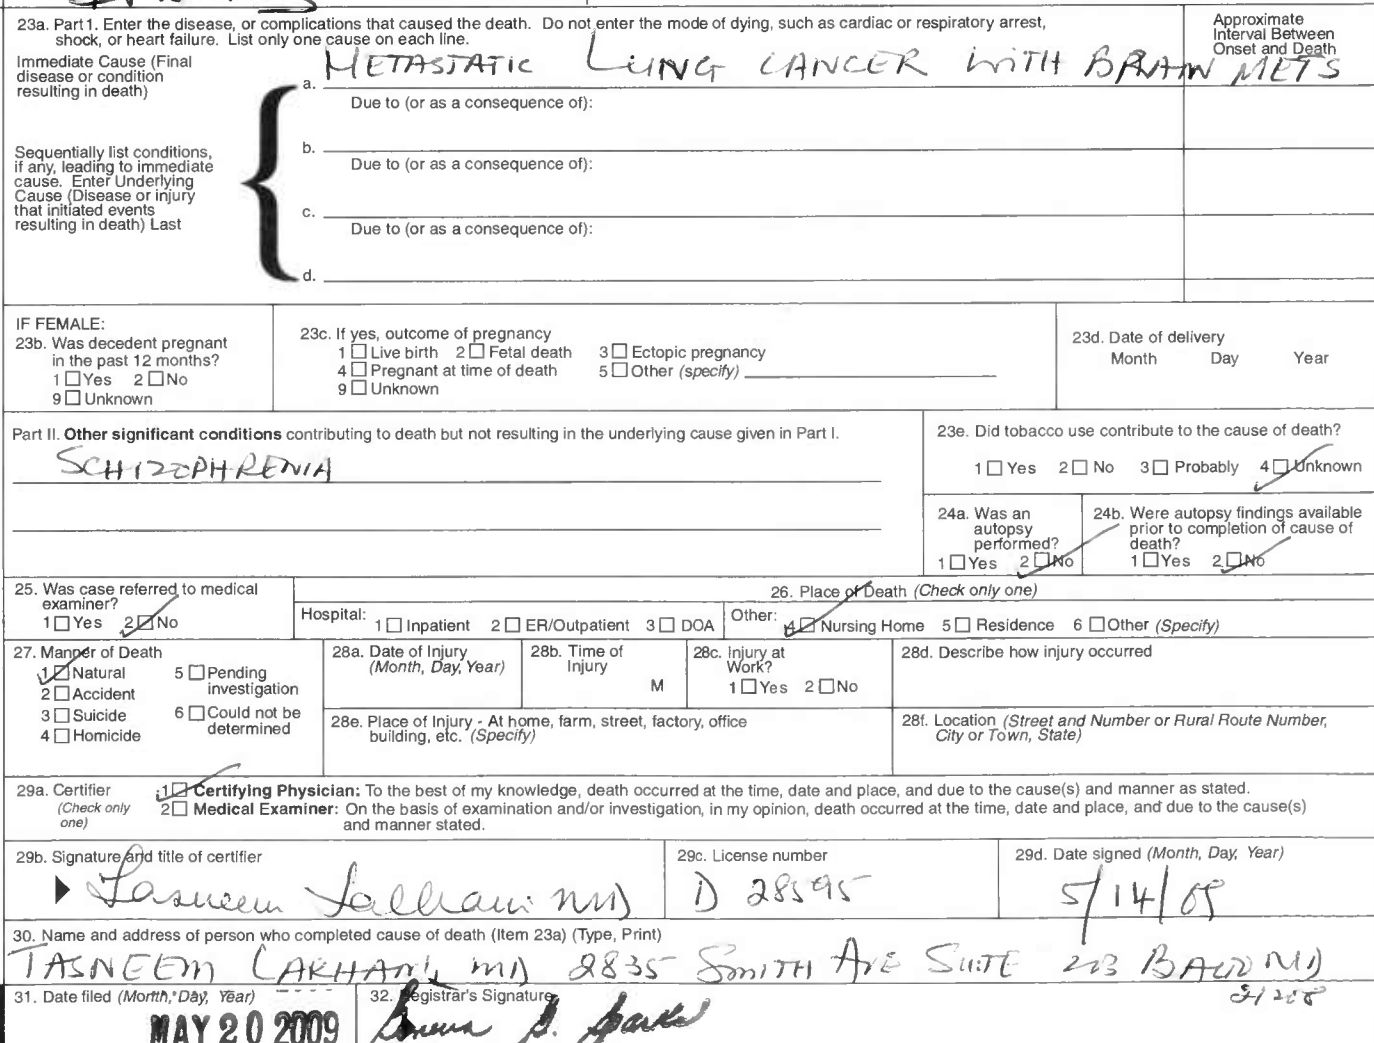 23a. Part 1. Enter the disease, or complications that caused the death. Do not enter the mode of dying, such as cardiac or respiratory arrest,
shock, or heart failure. List only one cause on each line.
Approximate
Interval Between
Onset and Death
Immediate Cause (Final
disease or condition
resulting in death)
a. METASTATIC LUNG CANCER WITH BRAIN METS
Due to (or as a consequence of):
Sequentially list conditions,
if any, leading to immediate
cause. Enter Underlying
Cause (Disease or injury
that initiated events
resulting in death) Last
b.
Due to (or as a consequence of):
c.
Due to (or as a consequence of):
d.
IF FEMALE:
23b. Was decedent pregnant
in the past 12 months?
1 Yes 2 No
9 Unknown
23c. If yes, outcome of pregnancy
1 Live birth 2 Fetal death 3 Ectopic pregnancy
4 Pregnant at time of death 5 Other (specify)
9 Unknown
23d. Date of delivery
Month Day Year
Part II. Other significant conditions contributing to death but not resulting in the underlying cause given in Part I.
SCHIZOPHRENIA
23e. Did tobacco use contribute to the cause of death?
1 Yes 2 No 3 Probably 4 Unknown
24a. Was an
autopsy
performed?
1 Yes 2 No
24b. Were autopsy findings available
prior to completion of cause of
death?
1 Yes 2 No
25. Was case referred to medical
examiner?
1 Yes 2 No
26. Place of Death (Check only one)
Hospital: 1 Inpatient 2 ER/Outpatient 3 DOA
Other: 4 Nursing Home 5 Residence 6 Other (Specify)
27. Manner of Death
1 Natural 5 Pending
investigation
2 Accident
3 Suicide 6 Could not be
determined
4 Homicide
28a. Date of Injury
(Month, Day, Year)
28b. Time of
Injury
M
28c. Injury at
Work?
1 Yes 2 No
28d. Describe how injury occurred
28e. Place of Injury - At home, farm, street, factory, office
building, etc. (Specify)
28f. Location (Street and Number or Rural Route Number,
City or Town, State)
29a. Certifier
(Check only
one)
1 Certifying Physician: To the best of my knowledge, death occurred at the time, date and place, and due to the cause(s) and manner as stated.
2 Medical Examiner: On the basis of examination and/or investigation, in my opinion, death occurred at the time, date and place, and due to the cause(s)
and manner stated.
29b. Signature and title of certifier
Tasneem Lakhani MD
29c. License number
D 28595
29d. Date signed (Month, Day, Year)
5/14/09
30. Name and address of person who completed cause of death (Item 23a) (Type, Print)
TASNEEM LAKHANI, MD 2835 SMITH AVE SUITE 203 BALTO MD
31. Date filed (Month, Day, Year)
MAY 20 2009
32. Registrar's Signature